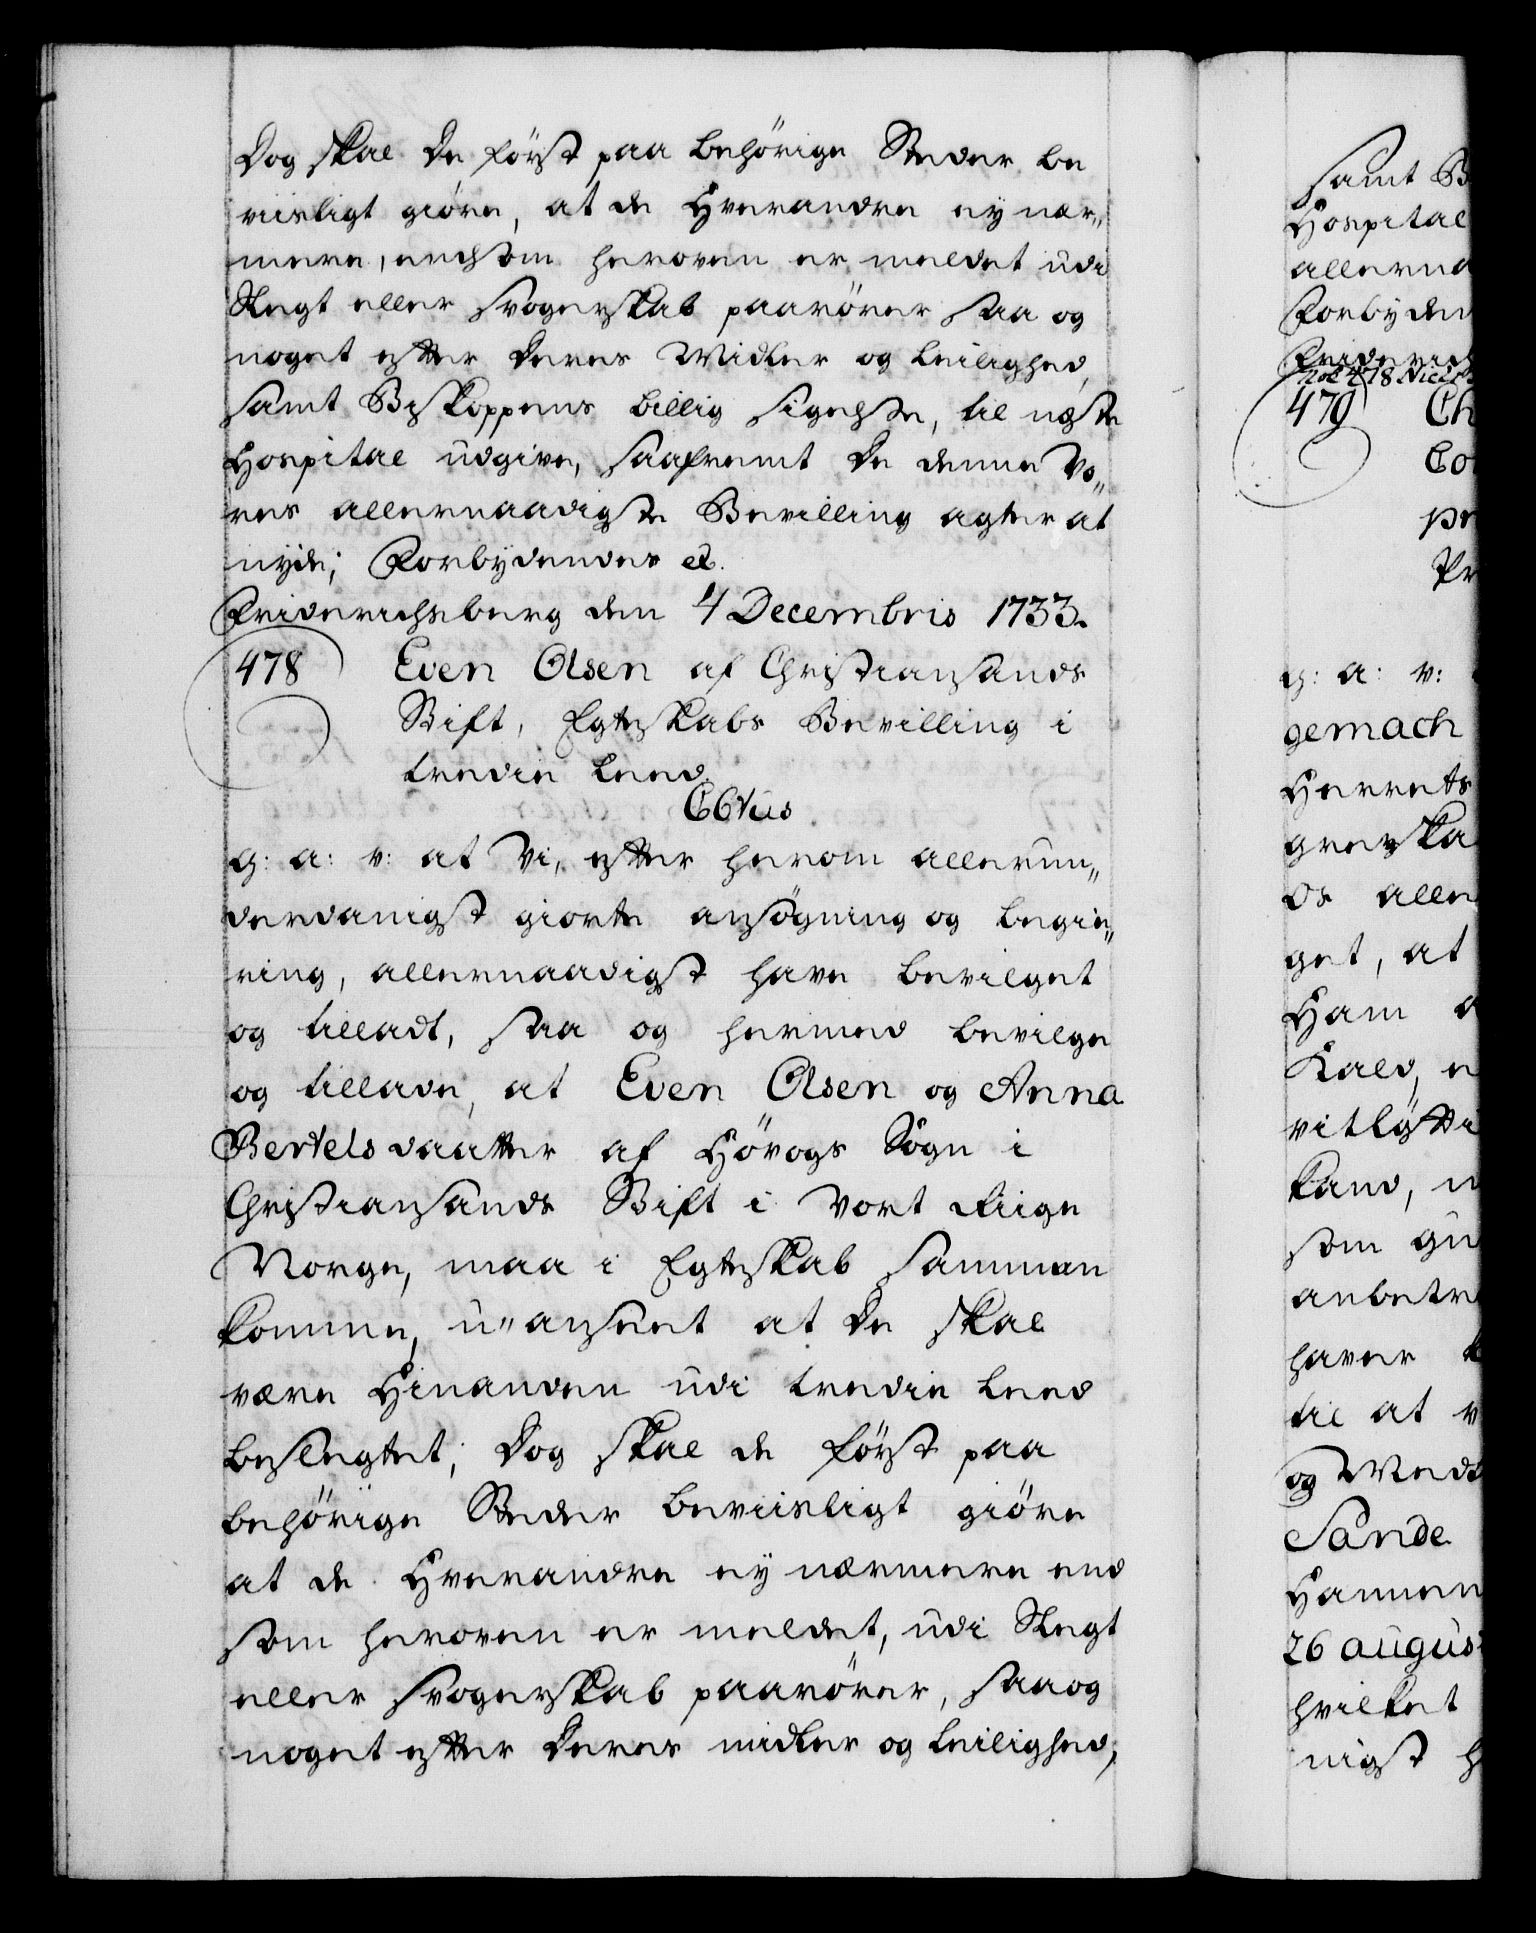 Dog skal De først paa behörige Steder be
viisligt giöre, at de Hverandre ey nær„
mere, end som heroven er meldet udi
Slegt eller svogerskab paarörer saa og
noget efter Deres Midler og leilighed,
samt Biskoppens billig sigelse, til næste
Hospital udgive, saafremt De denne Vo„
res allernaadigste Bevilling agter at
nyde; Forbydendes etc.
Friderichsberg den 4 Decembris 1733.
478 Even Olsen af Christiansands
Stift, Egteskabs Bevilling i
tredie leed.
C6tus
g: a: v: at Vi, efter herom allerun„
derdanigst giorte ansögning og begie„
ring, allernaadigst have bevilget
og tilladt, saa og hermed bevilge
og tillade, at Even Olsen og Anna
Bertelsdaatter af Hövogs Sogn i
Christiansands Stift i Vort Riige
Norge, maa i Egteskab sammen
komme, u„anseet at De skal
være Hinanden udi tredie leed
beslegtet; Dog skal de först paa
behörige Steder beviisligt giöre
at de Hverandre ey nærmere end
som heroven er meldet, udi Slegt
eller svogerskab paarörer, saa og
noget efter Deres midler og leilighed,
samt B
Hospital
allerna
Forbyden
Friderich
479 Ch
Co
pr
Pr
g: a: v:
gemach
Herrets
grevska
Os alle
get, at
Ham
Kald, e
vitløfti
kand,
som gu
anbetr
haver
til at v
og Med
Sande
Hannem
26 august
hvilket
nigst h